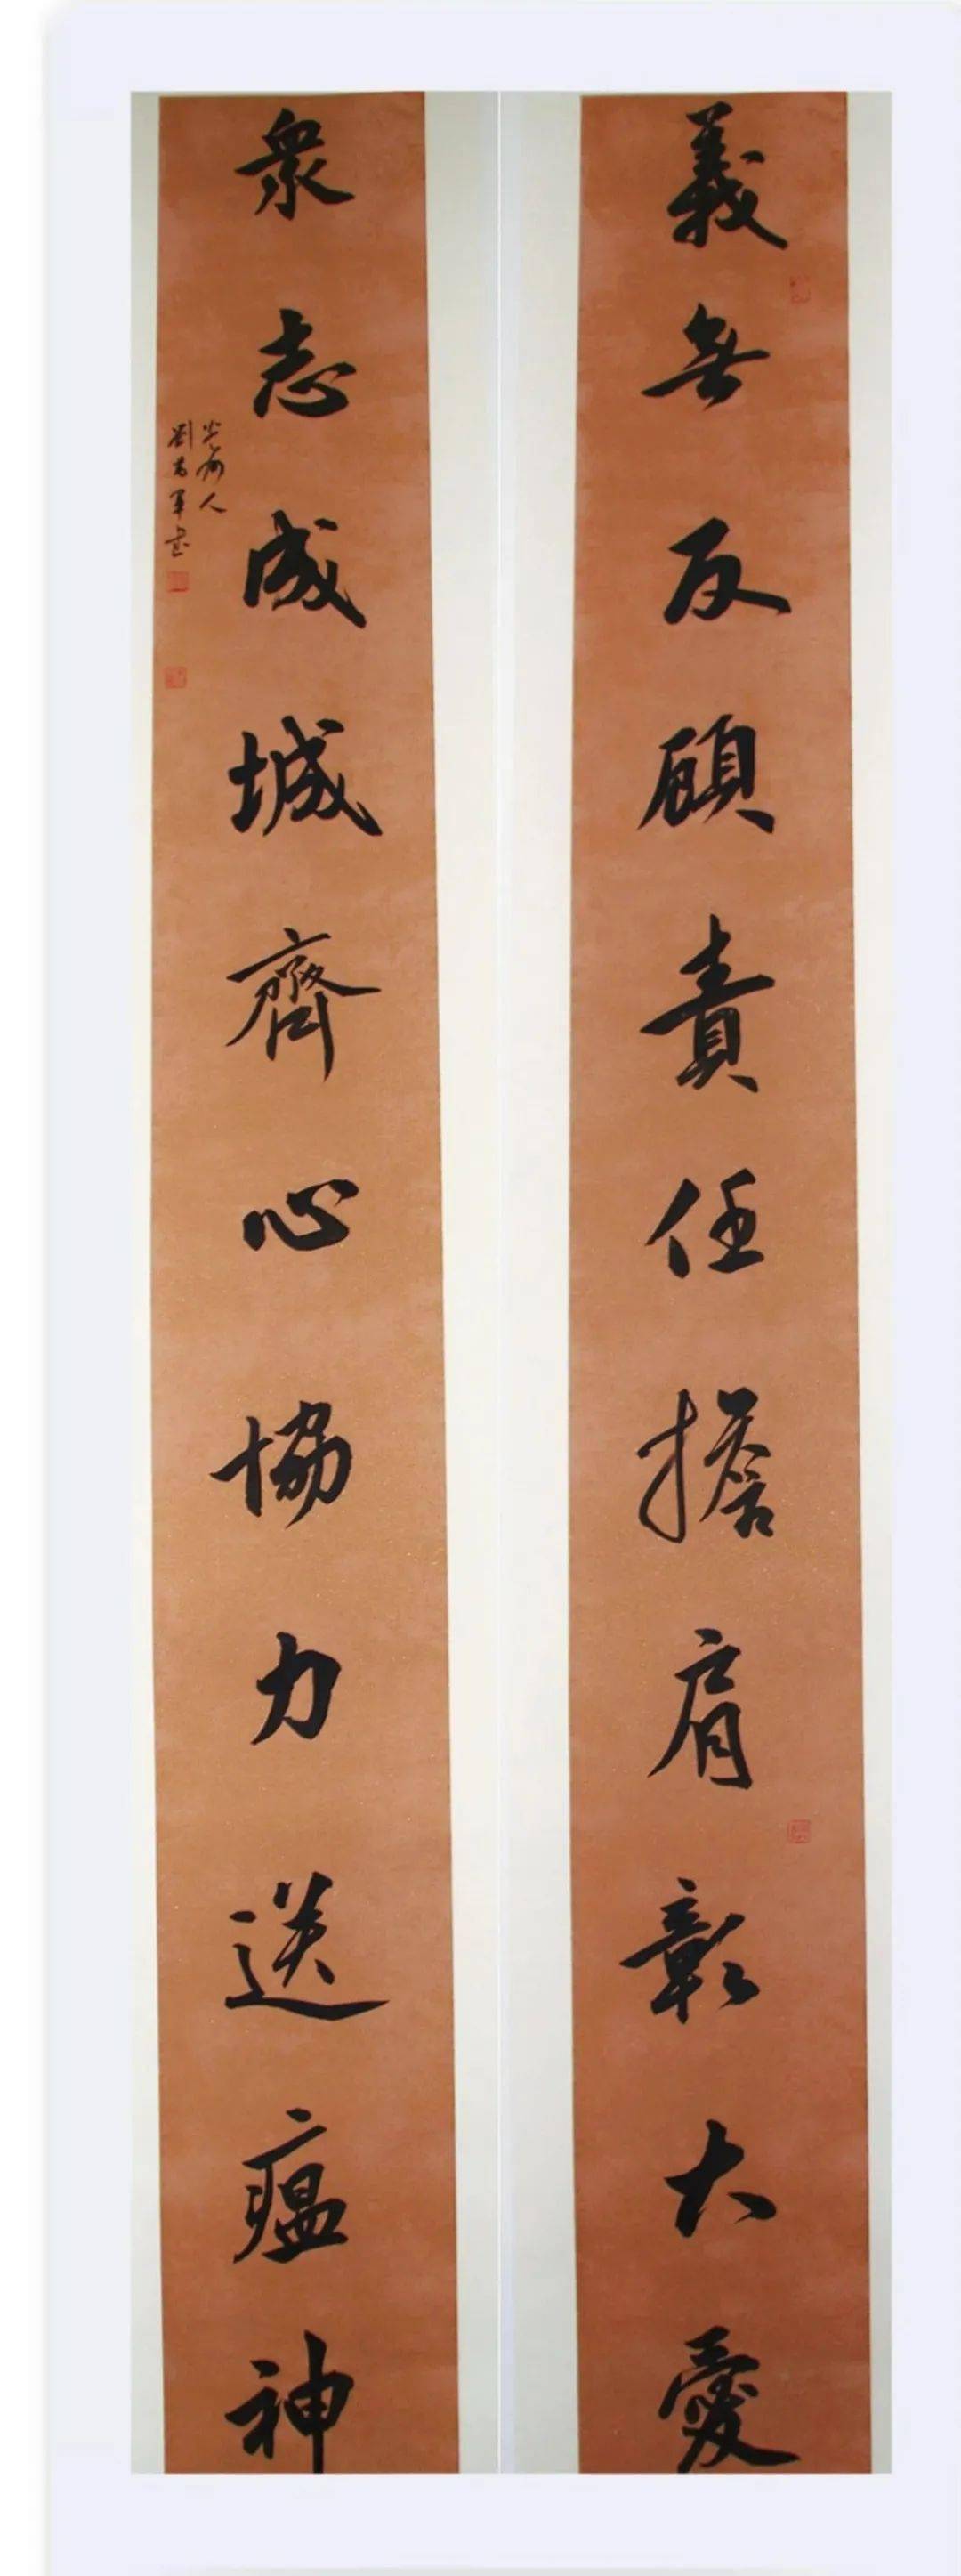 義無反顧責任擔肩彰大愛
衆志成城齊心協力送瘟神
光州人
劉為軍書